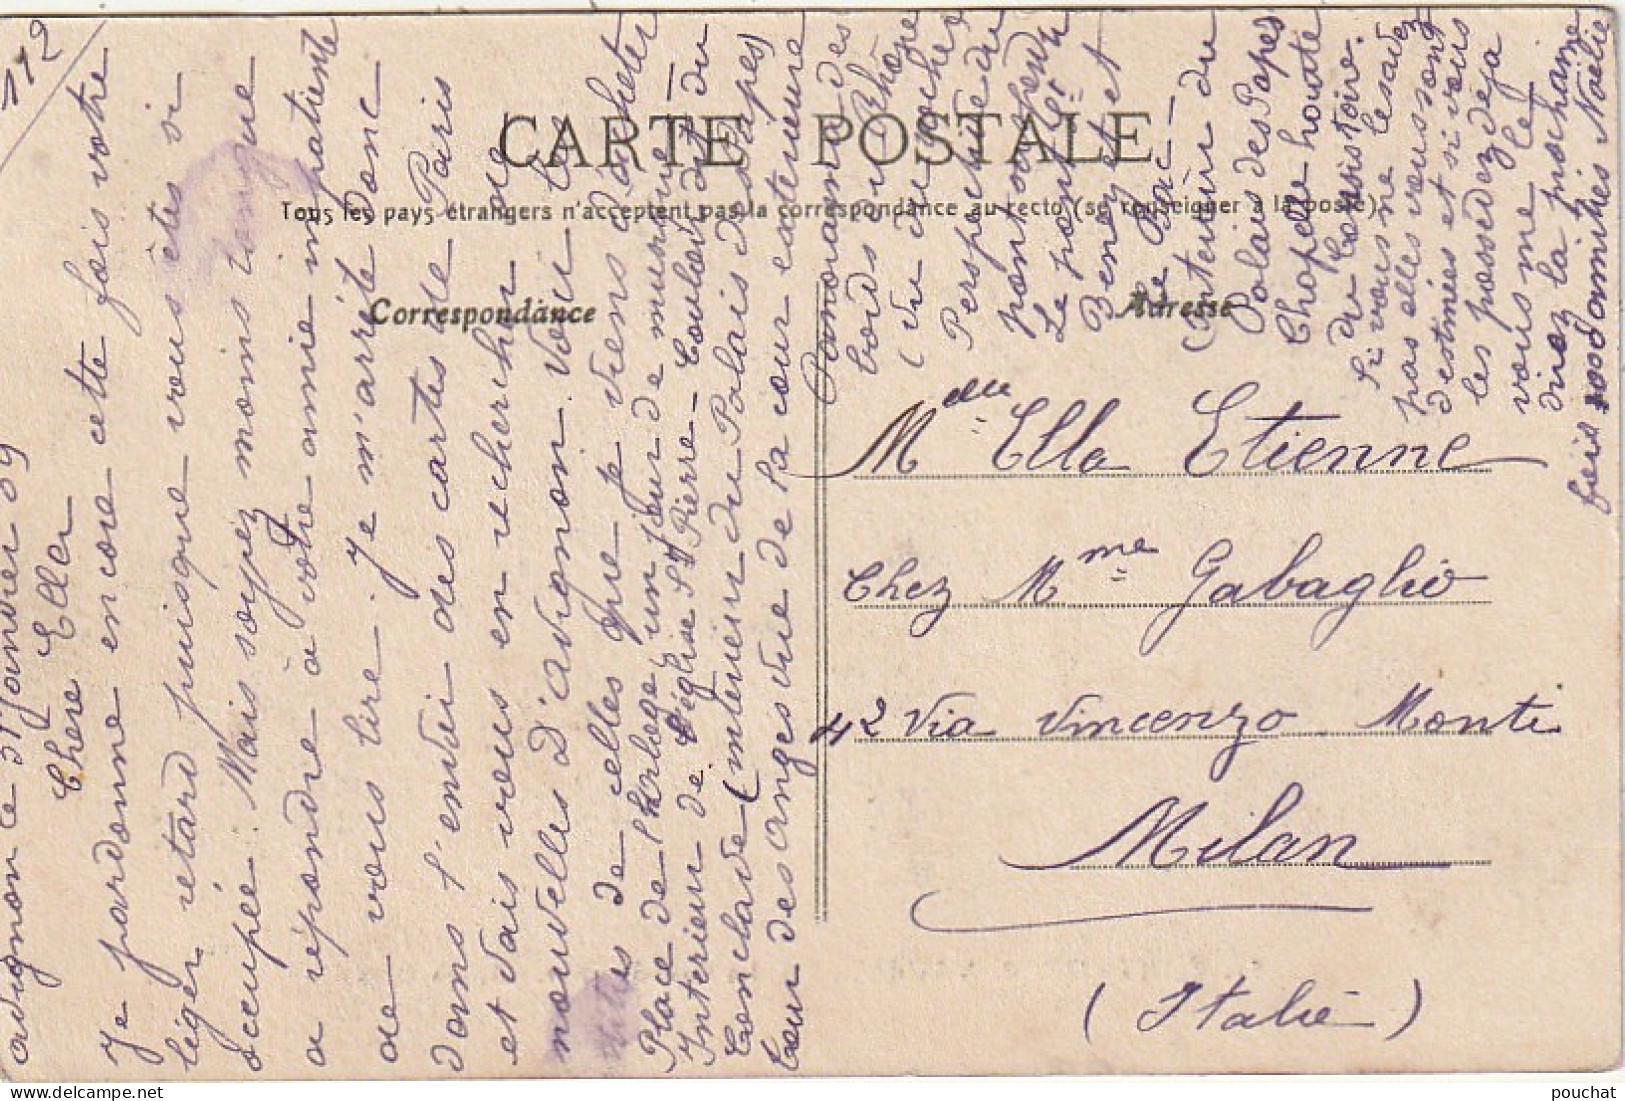 112
CARTE POSTALE
Tous les pays étrangers n'acceptent pas la correspondance au recto (se renseigner à la poste)
Correspondance
Adresse
Avignon ce 31 Janvier 09
Chère Ella
Je pardonne encore cette fois votre
léger retard puisque vous êtes si
occupée. Mais soyez moins longue
a répondre à votre amie impatiente
de vous lire. Je m'arrête donc
dans l'envoi des cartes de Paris
et vais vous en rechercher de
nouvelles d'Avignon. Voici les
titres de celles que je viens d'acheter
Place de l'horloge un jour de musique -
Interieur de l'église St Pierre - Couloir du
Conclave (interieur du Palais des Papes)
Tour des Anges vue de la cour exterieure
Panorama des
bords du Rhône
(vu du rocher
Perspective du
pont suspendu
Le pont St
Benezet et
le Bac -
(Interieur du
Palais des Papes
Chapelle haute
du Consistoire.
Si vous ne les avez
pas elles vous sont
destinées et si vous
les possédez déja
vous me le
direz la prochaine
fois
amitiés Noëlie
Melle Ella Etienne
Chez Mme Gabaglio
42 Via Vincenzo Monti
Milan
(Italie)
pouchat